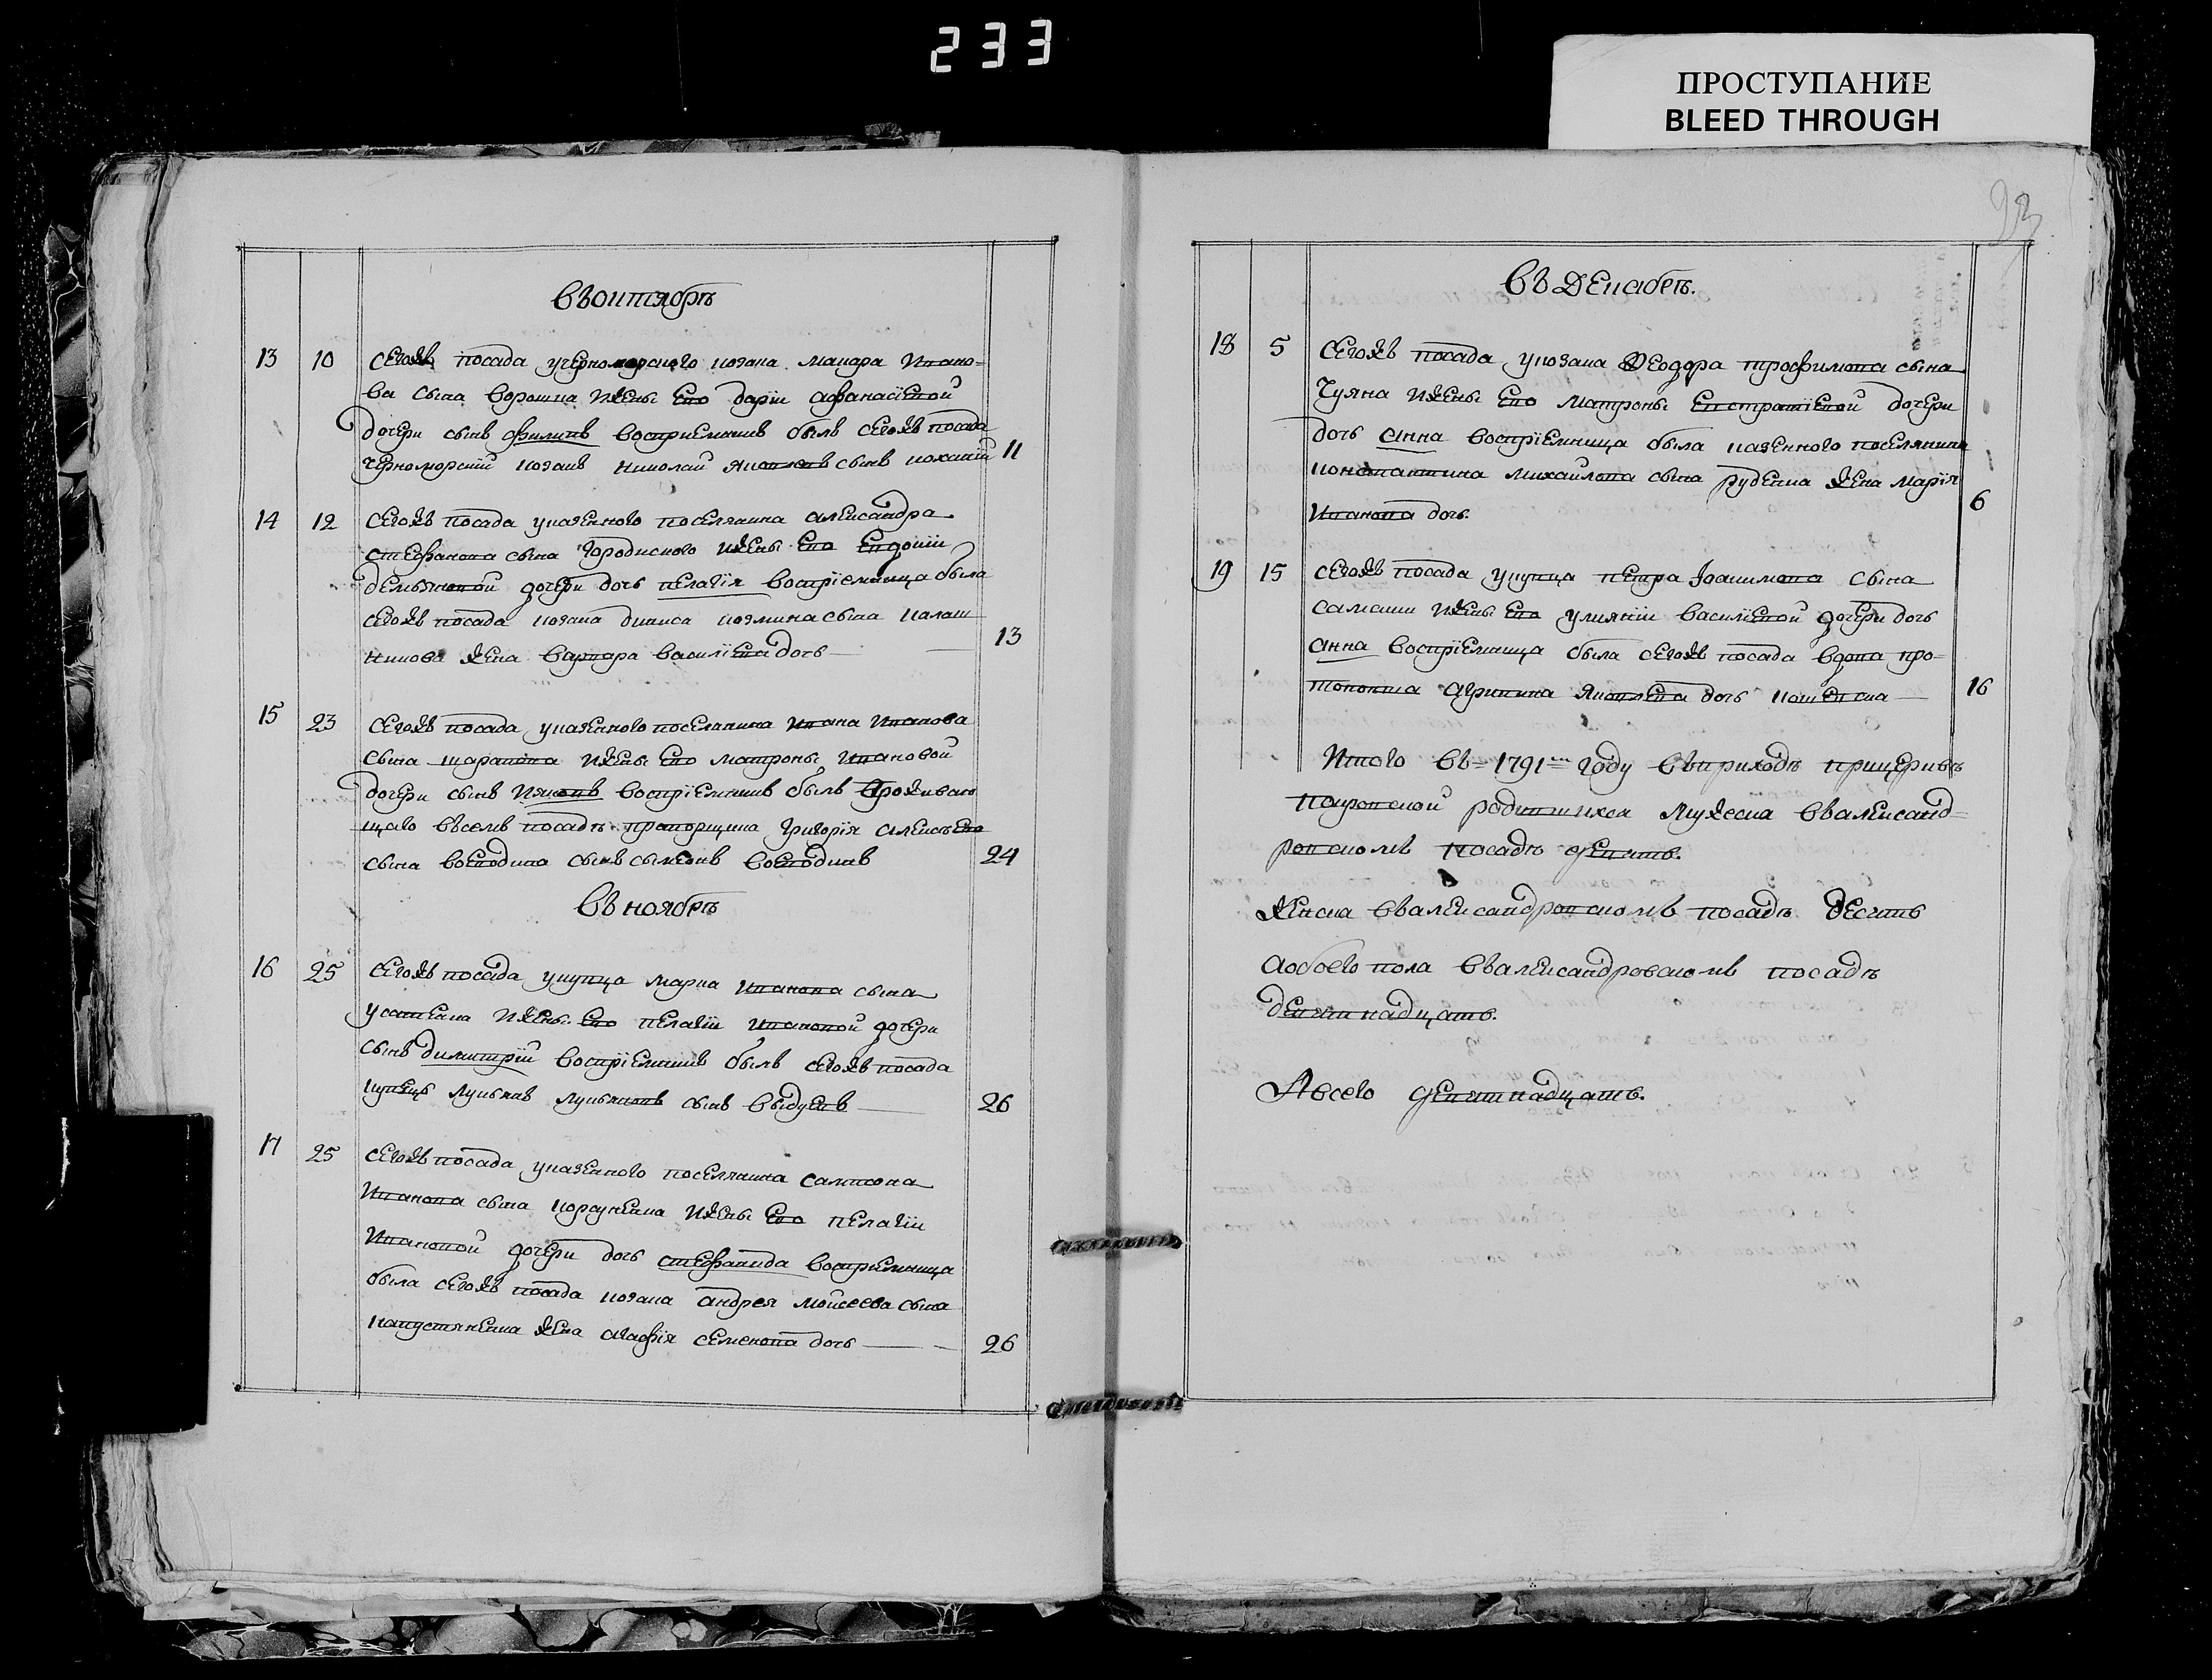 233
ПРОСТУПАНИЕ
BLEED THROUGH
93
Въ октябрѣ
13 10 Сегожъ посада у черноморского козака Макара Ивано-
ва сына Ворошка и жены его Дарiи Афанасiевой
дочери сынъ Филипъ восприемникъ былъ сегожъ посада
черноморскiй козакъ Николай Яковлевъ сынъ 11
14 12 Сегожъ посада у казенного поселянина Александра
Стефанова сына Городиского и жены его Евдокiи
Демьяновой дочери дочь Пелагiя воспрiемница была
сегожъ посада козака Дианиса Козмина сына Калаш
никова жена Варвара Василiева дочь 13
15 23 Сегожъ посада у казенного поселянина Ивана Иванова
сына Шарапова и жены его Матроны Ивановой
дочери сынъ Ияковъ воспрiемникъ былъ проживаю
щаго въ семъ посадѣ прапорщика Григорiя Алексѣева
сына Воеводина сынъ Сымеонъ Воеводинъ 24
Въ ноябрѣ
16 25 Сегожъ посада у купца Марка Иванова сына
Усатенка и жены его Пелагiи Ивановой дочери
сынъ Димитрiй воспрiемникъ былъ сегожъ посада
купецъ Лукьянъ Лукьяновъ сынъ 26
17 25 Сегожъ посада у казенного поселянина Сампсона
Иванова сына Корсуненка и жены его Пелагiи
Ивановой дочери дочь Стефанида восприемница
была сегожъ посада козака Андрея Мойсеева сына
Капустяненка жена Агафiя Семенова дочь 26
Въ Декабрѣ.
18 5 Сегожъ посада у козака Феодора Трофимова сына
Чуяна и жены его Матроны Евстратiевой дочери
дочь Анна воспрiемница была казенного поселянина
Константина Михайлова сына Руденка жена Марiя
Иванова дочь. 6
19 15 Сегожъ посада у купца Петра Iоакимова сына
и жены его Улиянiи Василiевой дочери дочь
Анна воспрiемница была сегожъ посада вдова про-
топопша Агрипина Яковлева дочь 16
Итого въ 1791м году въ приходѣ при церквѣ
Покровской родившихся мужеска въ Александ=
ровскомъ посадѣ девять.
Женска въ Александровскомъ посадѣ десять
А обоего пола въ Александровскомъ посадѣ
девятнадцать.
А всего девятнадцать.